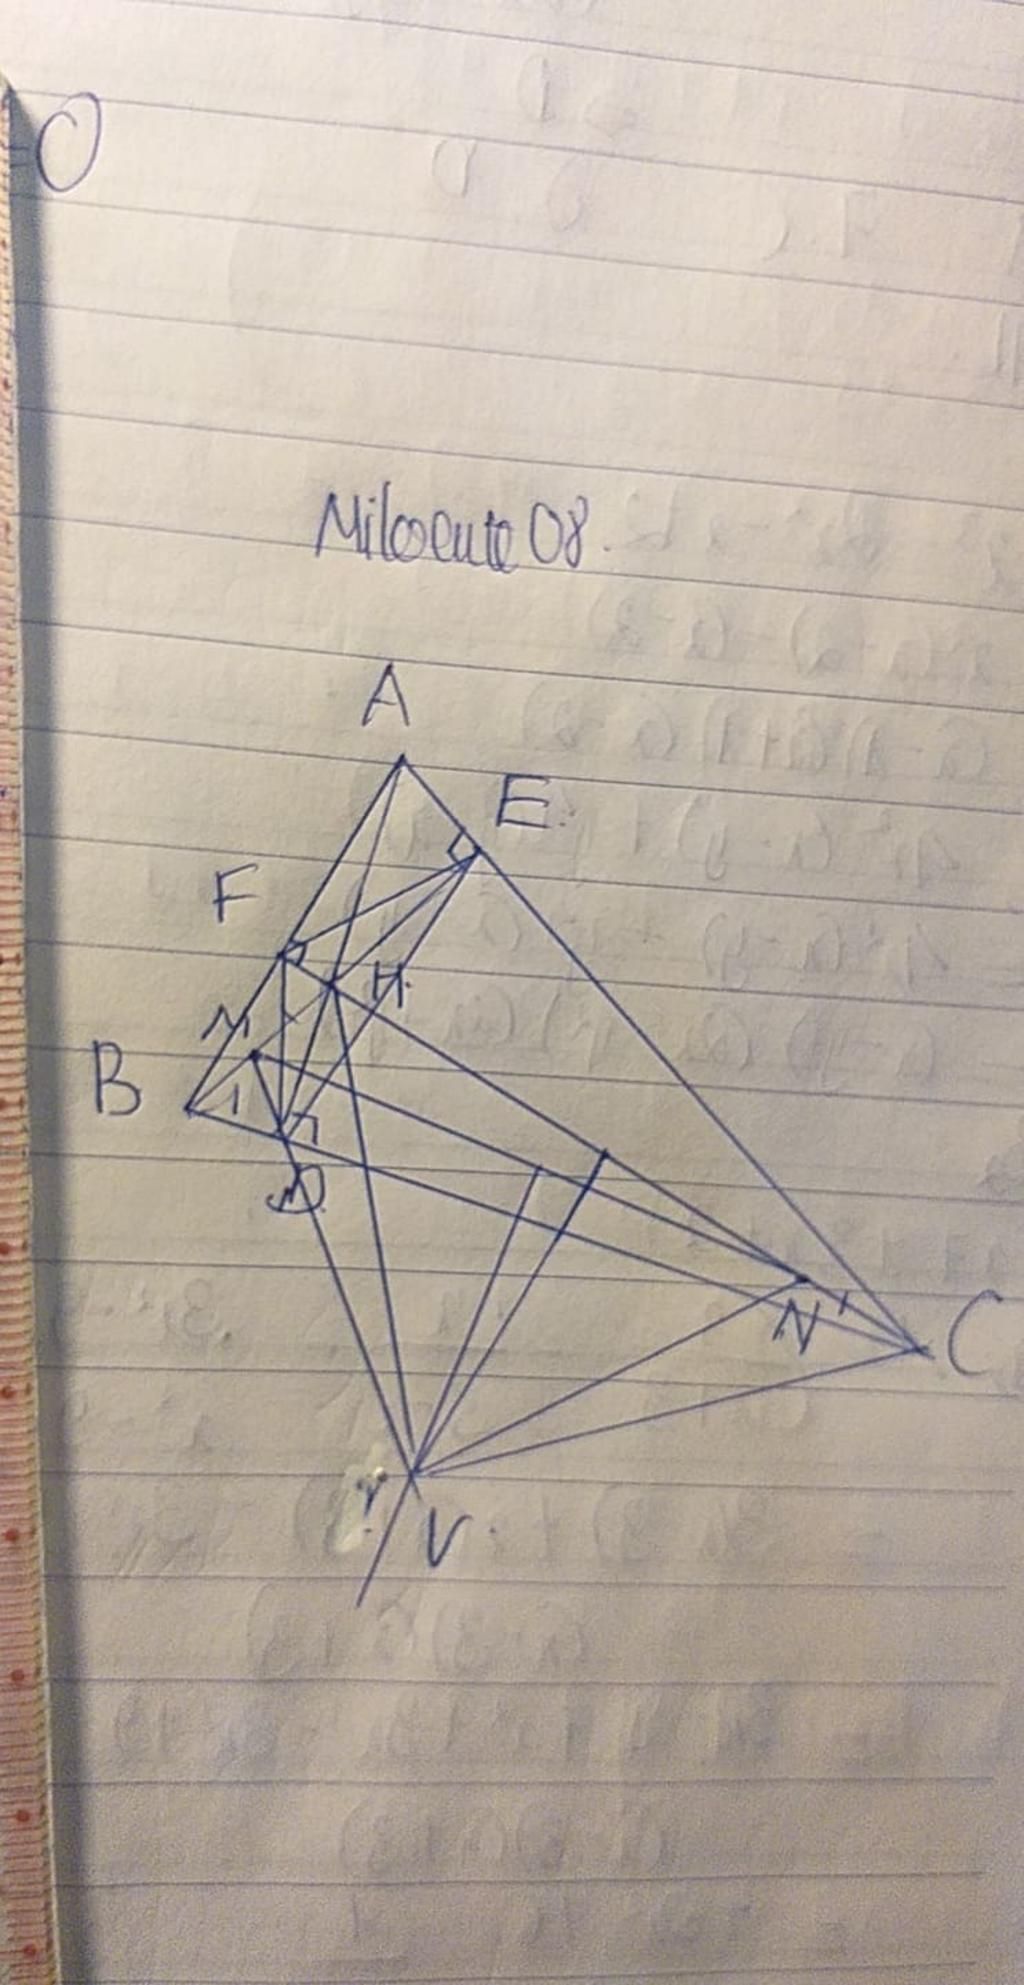 O
Milocute08.
A
E
F
H
M
B
1
D
N
C
V